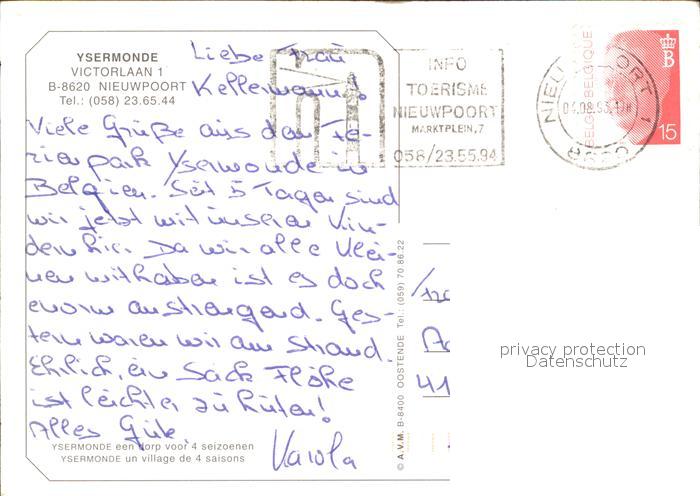 YSERMONDE
VICTORLAAN 1
B-8620 NIEUWPOORT
Tel.: (058) 23.65.44
Liebe Frau
Kellermann!
Viele Grüße aus dem Fe-
rienpark Ysermonde in
Belgien. Seit 5 Tagen sind
wir jetzt mit unseren Kin-
dern hier. Da wir alle Klei-
nen mithaben ist es doch
enorm anstrengend. Ges-
tern waren wir am Strand.
Ehrlich, ein Sack Flöhe
ist leichter zu hüten!
Alles Gute,
Karola
YSERMONDE een dorp voor 4 seizoenen
YSERMONDE un village de 4 saisons
© A.V.M. B-8400 OOSTENDE Tel.: (059) 70.86.22
INFO
TOERISME
NIEUWPOORT
MARKTPLEIN,7
058/23.55.94
NIEUWPOORT 1
8620
BELGIE-BELGIQUE
B
15
41
privacy protection
Datenschutz